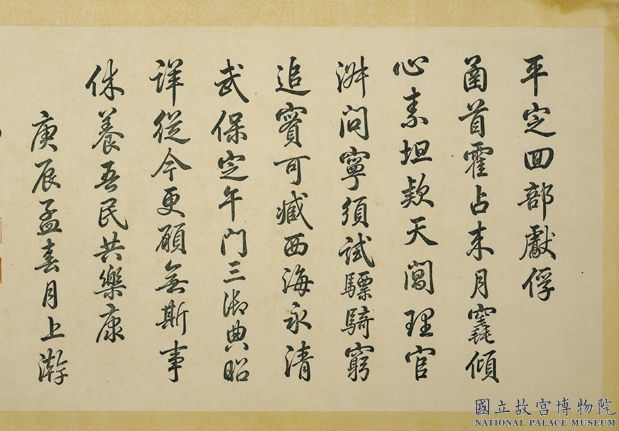 平定回部獻俘
函首霍占来月竁傾
心素坦欵天閶理官
淑問寧須試驃騎窮
追實可臧西海永清
武保定午門三御典昭
詳從今更願無斯事
休養吾民共樂康
庚辰孟春月上澣
國立故宮博物院
NATIONAL PALACE MUSEUM